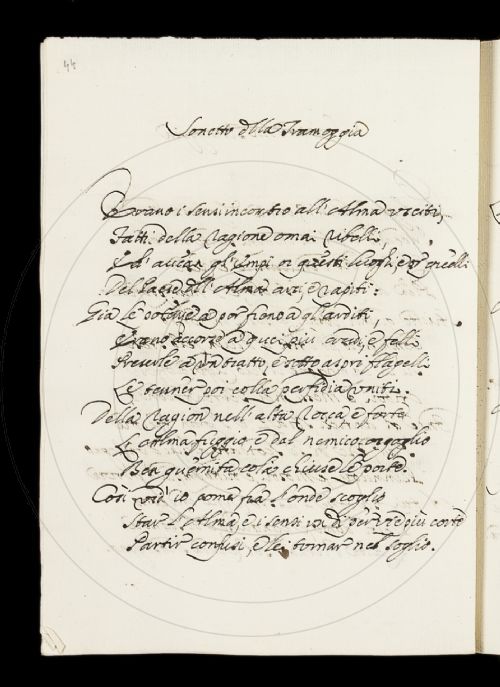 44
Sonetto della Tramoggia
Erano i sensi incontro all' Alma usciti,
Fatti della ragione omai ribelli,
gl' empi or questi luoghi, or quelli
Del dell' Alma avi, e rapiti:
Già le potenze a por fieno agl' arditi,
Erano accorse a quei più crudi, e felli
Preserle a un tratto, e sotto aspri flagelli
Le tenner poi colla perfidia uniti.
Della ragion nell' alta rocca e forte
L' Alma fuggio, e dal nemico orgoglio
Ben guernita colà chiuse le porte.
Così vid' io pomê fra l'onde scoglio
Star l' Alma, e i sensi per vie più corte
Partir confusi, e lei tornar nel soglio.